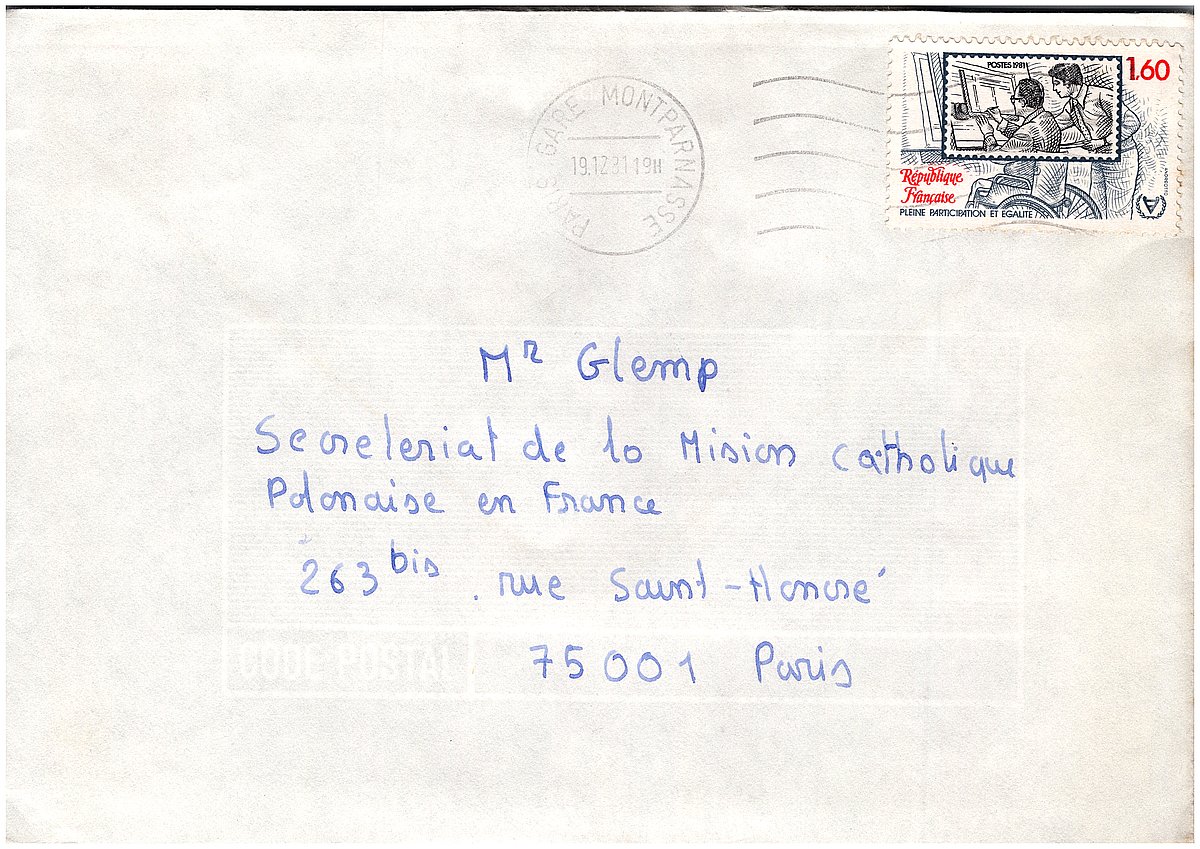 POSTES 1981
1,60
PARIS GARE MONTPARNASSE
19.12.81 19H
République
Française
PLEINE PARTICIPATION ET EGALITE
Mr Glemp
Secreteriat de la Mision Catholique
Polonaise en France
263 bis . rue Saint-Honoré
75001 Paris
CODE POSTAL